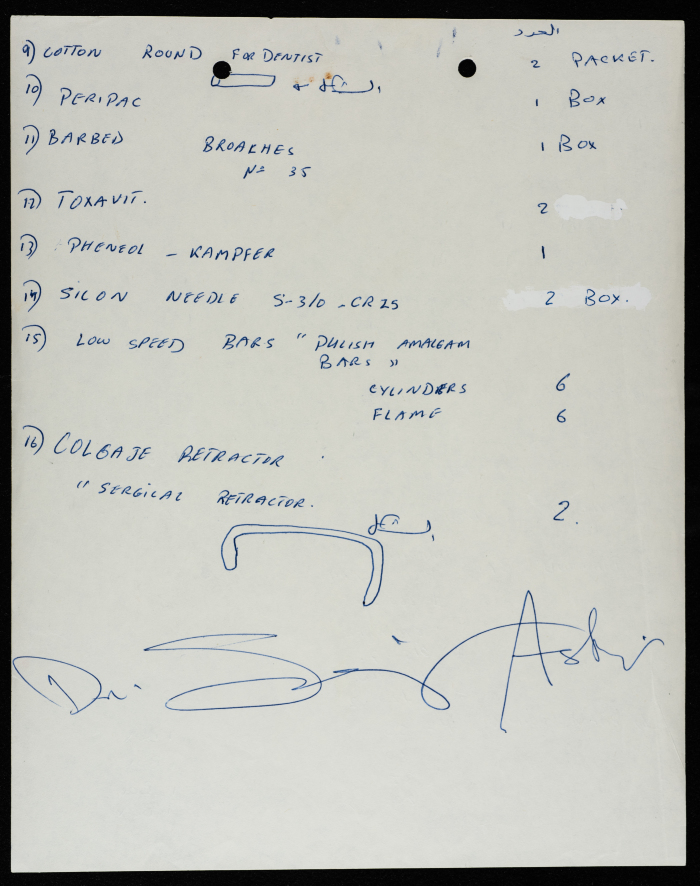 العدد
9) COTTON ROUND FOR DENTIST 2 PACKET.
الشكل
10) PERIPAC 1 BOX
11) BARBED BROAKHES 1 BOX
Nº 35
12) TOXAVIT. 2
13) PHENEOL - KAMPFER 1
14) SILON NEEDLE S-3/0 - CR25 2 BOX.
15) LOW SPEED BARS " PULISH AMALGAM
BARS "
CYLINDERS 6
FLAME 6
16) COLGATE RETRACTOR
" SERGICAL RETRACTOR. 2.
الشكل
Dr.